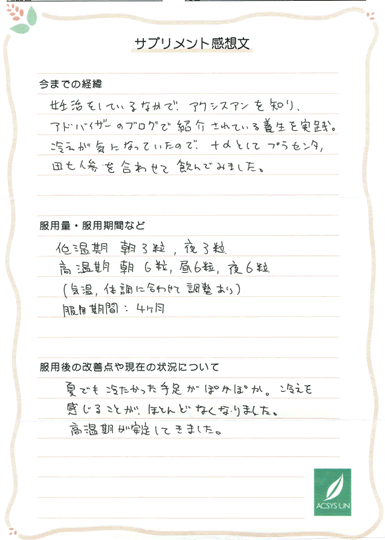 サプリメント感想文
今までの経緯
妊活をしているなかで、アクシスアンを知り、
アドバイザーのブログで紹介されている養生を実践。
冷えが気になっていたので、+αとしてプラセンタ,
田七人参を合わせて飲んでみました。
服用量・服用期間など
低温期 朝3粒, 夜3粒
高温期 朝6粒, 昼6粒, 夜6粒
(気温, 体調に合わせて調整あり)
服用期間: 4ヶ月
服用後の改善点や現在の状況について
夏でも冷たかった手足がぽかぽか。冷えを
感じることが、ほとんどなくなりました。
高温期が安定してきました。
ACSYS UN